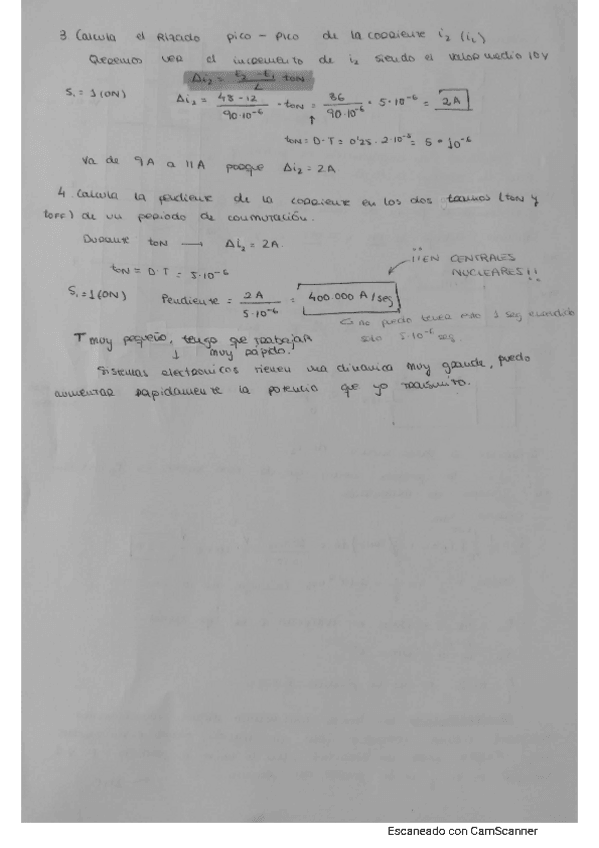 3. Calcula el Rizado pico - pico de la corriente i2 (iL)
Queremos ver el incremento de i2 siendo el valor medio 10V
Δi2 = E2 - E1 / L · tON
S1 = 1 (ON) Δi2 = 48 - 12 / 90·10^-6 · tON = 36 / 90·10^-6 · 5·10^-6 = 2A
tON = D·T = 0'25 · 2·10^-5 = 5·10^-6
Va de 9A a 11A porque Δi2 = 2A
4. Calcula la pendiente de la corriente en los dos tramos (tON y
tOFF) de un periodo de conmutación.
Durante tON → Δi2 = 2A.
¡¡EN CENTRALES
NUCLEARES!!
tON = D·T = 5·10^-6
S1 = 1 (ON) Pendiente = 2A / 5·10^-6 = 400.000 A/seg
no puedo tener 1 seg encendido
5·10^-6 seg.
T muy pequeño, tengo que trabajar
↓ muy rápido.
Sistemas electronicos tienen una dinamica muy grande, puedo
aumentar rapidamente la potencia que yo transmito.
Escaneado con CamScanner